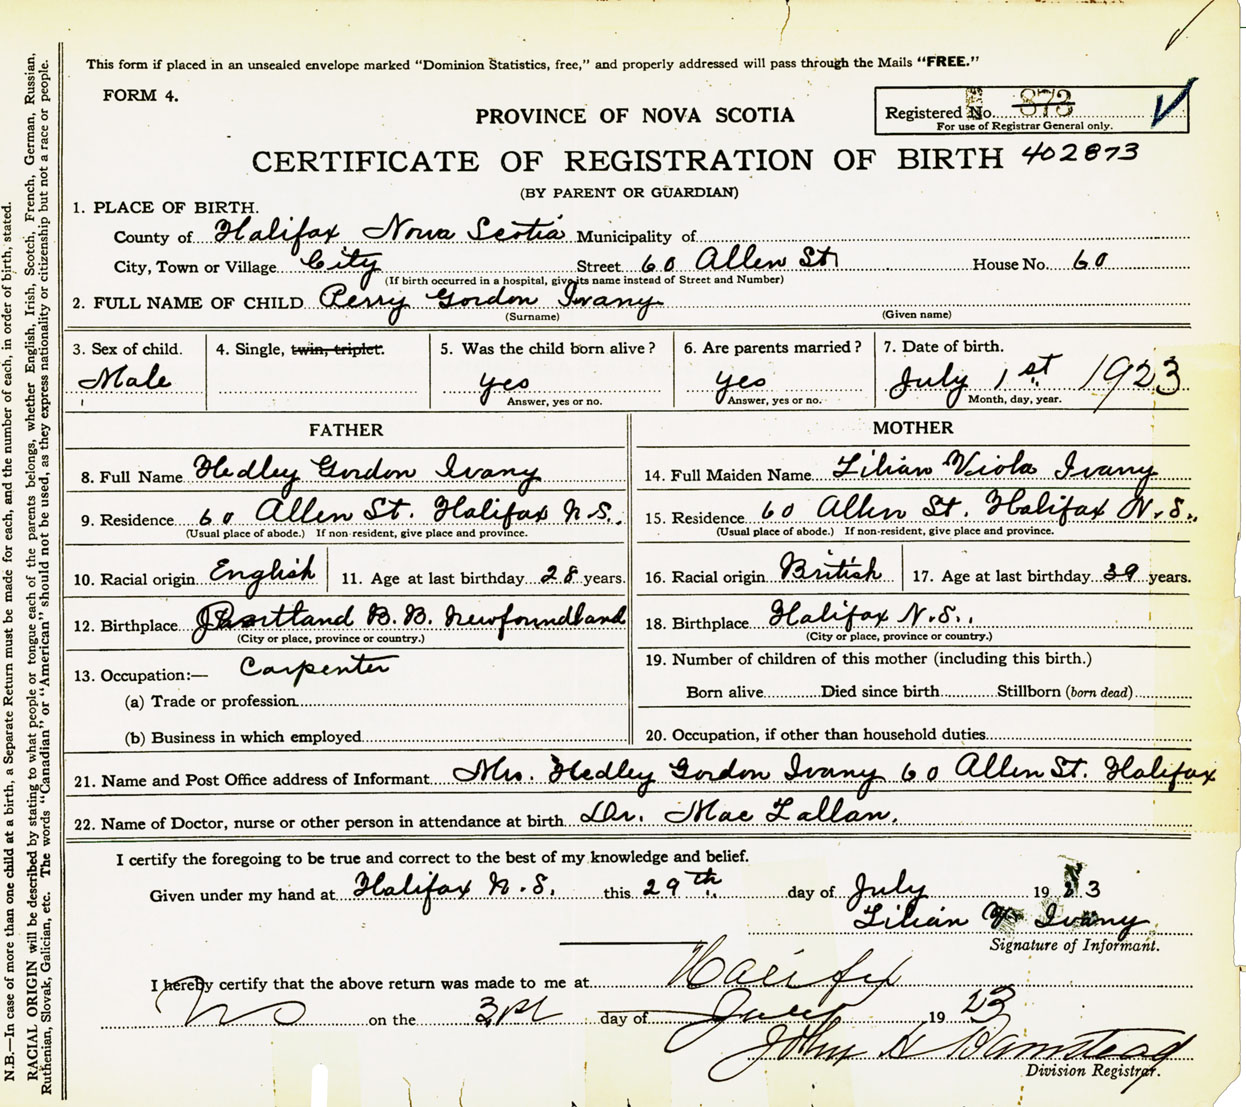 This form if placed in an unsealed envelope marked "Dominion Statistics, free," and properly addressed will pass through the Mails "FREE."
FORM 4.
PROVINCE OF NOVA SCOTIA
Registered No. 873
For use of Registrar General only.
CERTIFICATE OF REGISTRATION OF BIRTH 402873
(BY PARENT OR GUARDIAN)
1. PLACE OF BIRTH.
County of Halifax Nova Scotia Municipality of
City, Town or Village City Street 60 Allen St House No. 60
(If birth occurred in a hospital, give its name instead of Street and Number)
2. FULL NAME OF CHILD Perry Gordon Ivany
(Surname) (Given name)
3. Sex of child. 4. Single, twin, triplet. 5. Was the child born alive? 6. Are parents married? 7. Date of birth.
Male yes yes July 1st 1923
Answer, yes or no. Answer, yes or no. Month, day, year.
FATHER MOTHER
8. Full Name Hedley Gordon Ivany 14. Full Maiden Name Lilian Viola Ivany
9. Residence 60 Allen St. Halifax N.S. 15. Residence 60 Allen St. Halifax N.S.
(Usual place of abode.) If non-resident, give place and province. (Usual place of abode.) If non-resident, give place and province.
10. Racial origin English 11. Age at last birthday 28 years. 16. Racial origin British 17. Age at last birthday 39 years.
12. Birthplace B.B. Newfoundland 18. Birthplace Halifax N.S.
(City or place, province or country.) (City or place, province or country.)
13. Occupation:— Carpenter 19. Number of children of this mother (including this birth.)
(a) Trade or profession Born alive Died since birth Stillborn (born dead)
(b) Business in which employed 20. Occupation, if other than household duties
21. Name and Post Office address of Informant Mrs. Hedley Gordon Ivany 60 Allen St. Halifax
22. Name of Doctor, nurse or other person in attendance at birth Dr. Mac Lallan.
I certify the foregoing to be true and correct to the best of my knowledge and belief.
Given under my hand at Halifax N.S. this 29th day of July 1923
Lilian V. Ivany
Signature of Informant.
I hereby certify that the above return was made to me at Halifax
NS on the day of 1923
John
Division Registrar.
N.B.—In case of more than one child at a birth, a Separate Return must be made for each, and the number of each, in order of birth, stated.
RACIAL ORIGIN will be described by stating to what people or tongue each of the parents belongs, whether English, Irish, Scotch, French, German, Russian,
Ruthenian, Slovak, Galician, etc. The words "Canadian" or "American" should not be used, as they express nationality or citizenship but not a race or people.